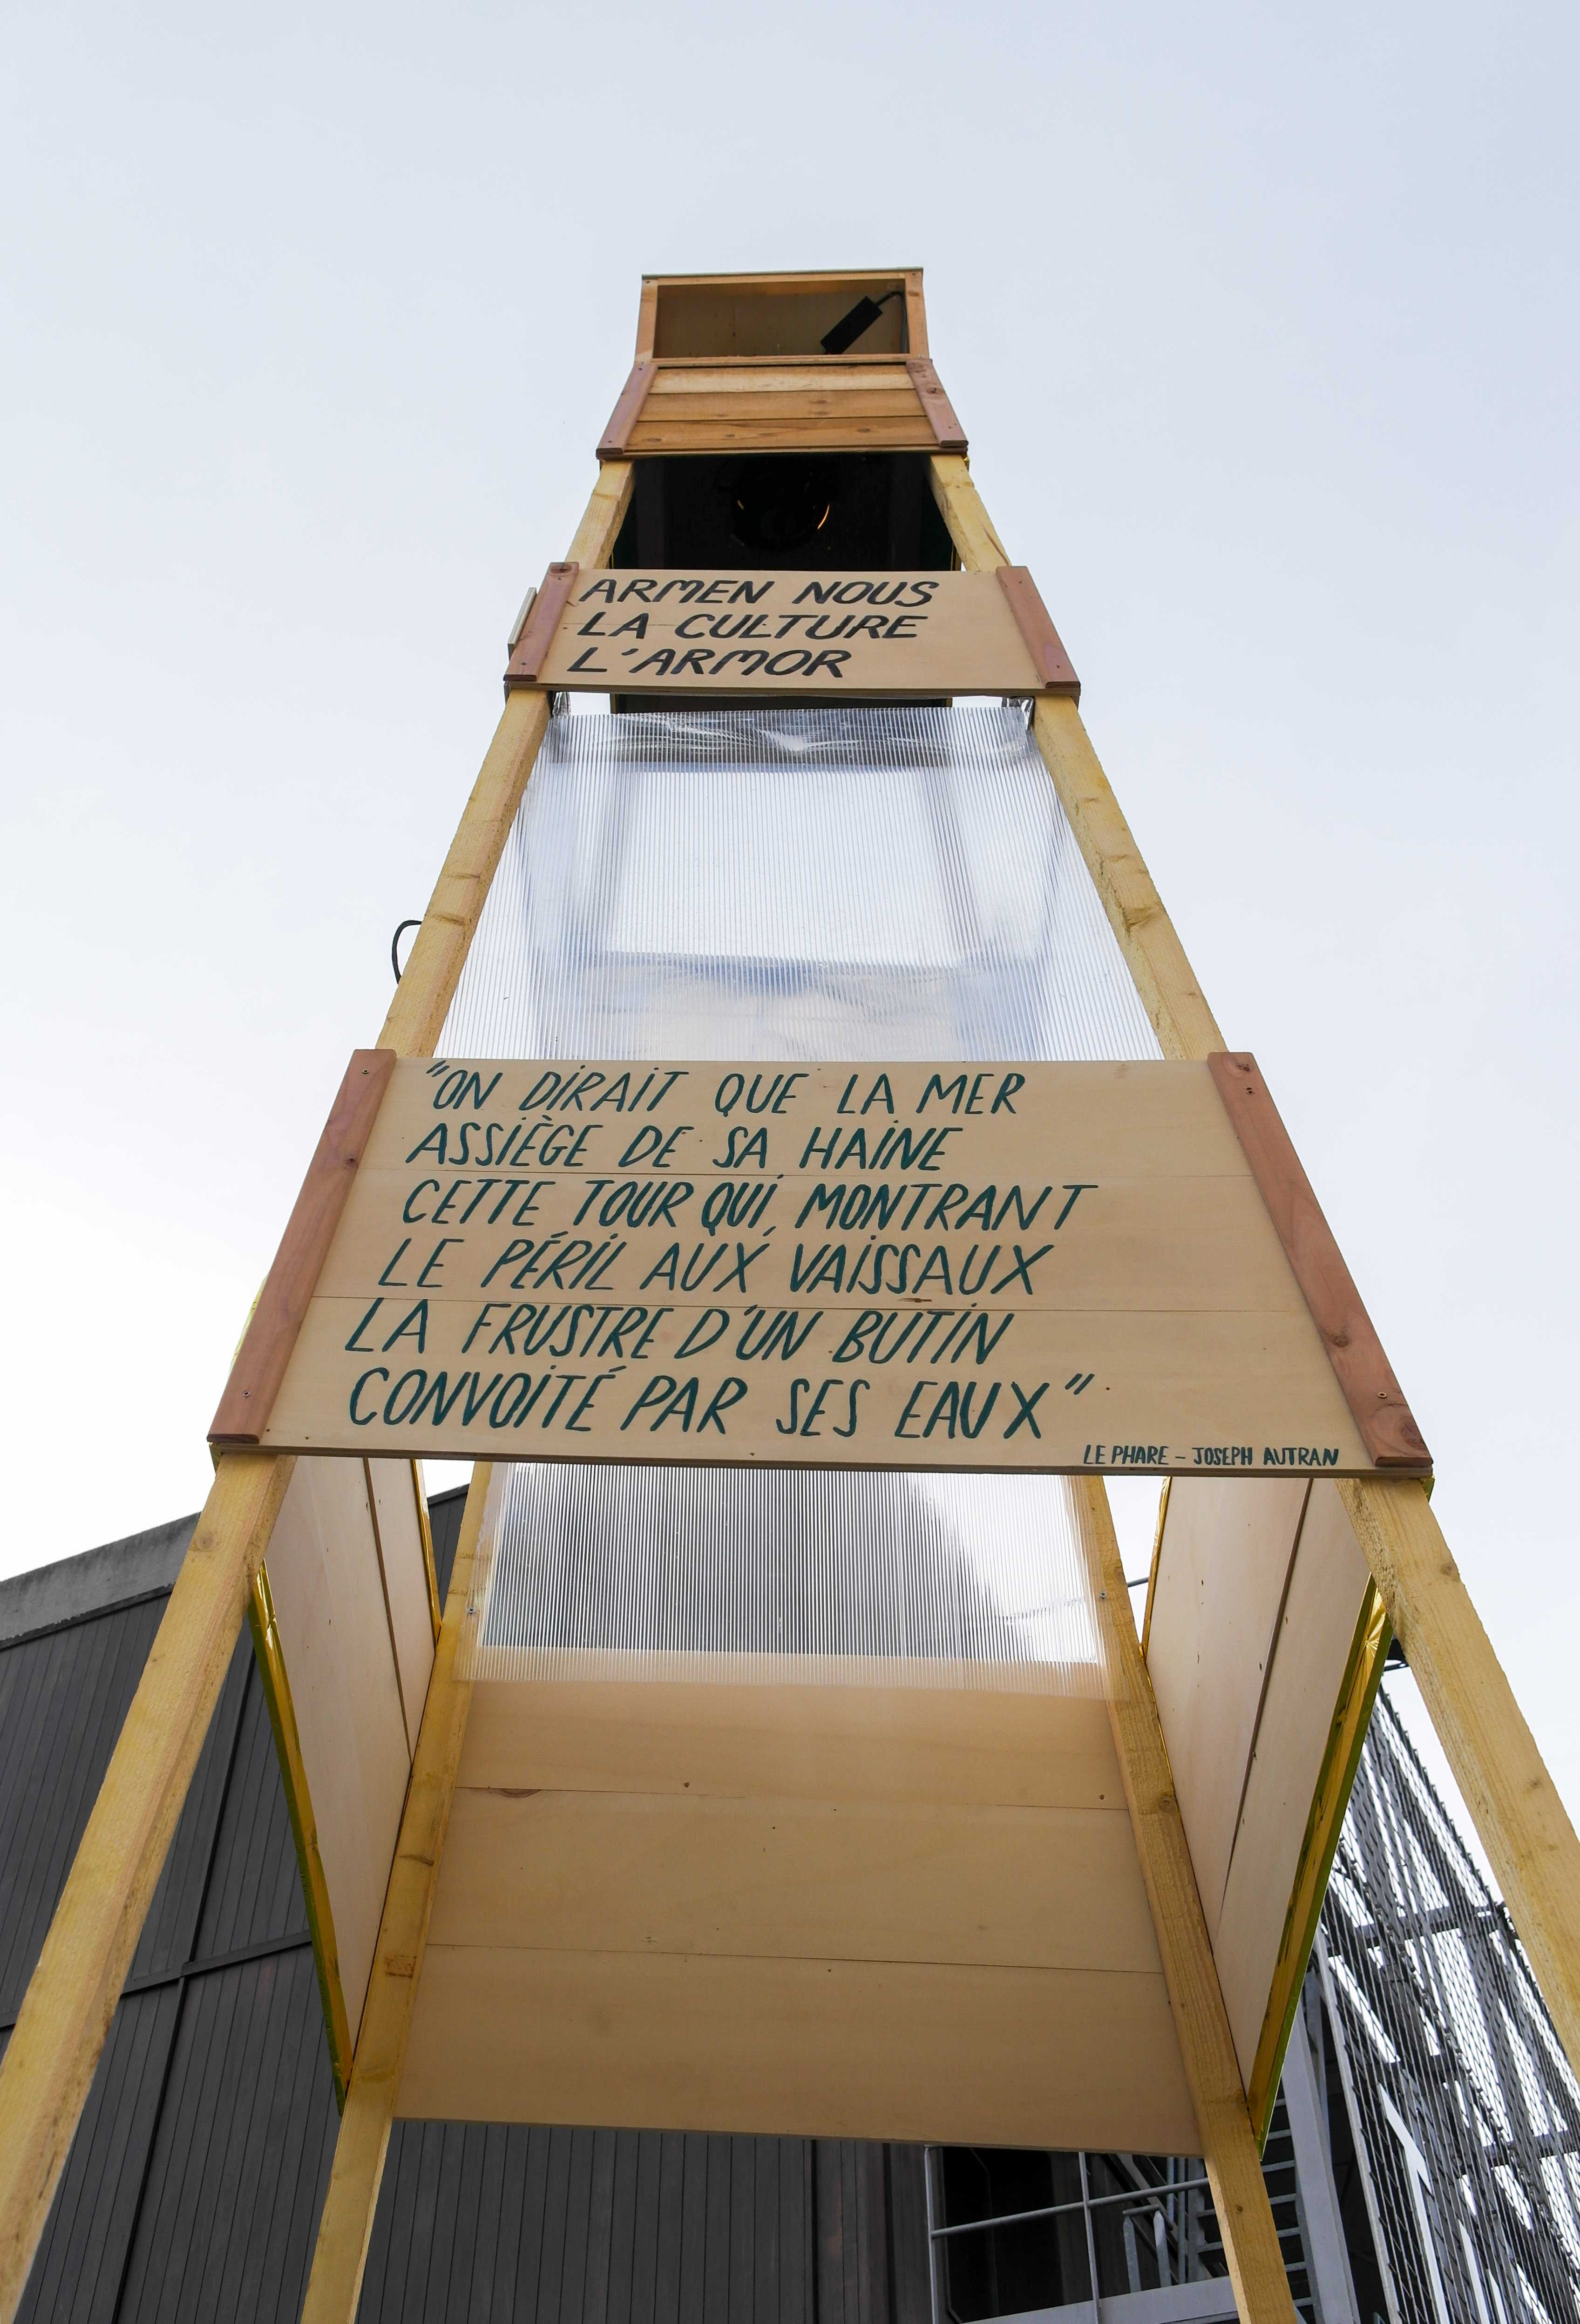 ARMEN NOUS
LA CULTURE
L'ARMOR
"ON DIRAIT QUE LA MER
ASSIÈGE DE SA HAINE
CETTE TOUR QUI, MONTRANT
LE PÉRIL AUX VAISSAUX
LA FRUSTRE D'UN BUTIN
CONVOITÉ PAR SES EAUX"
LE PHARE - JOSEPH AUTRAN